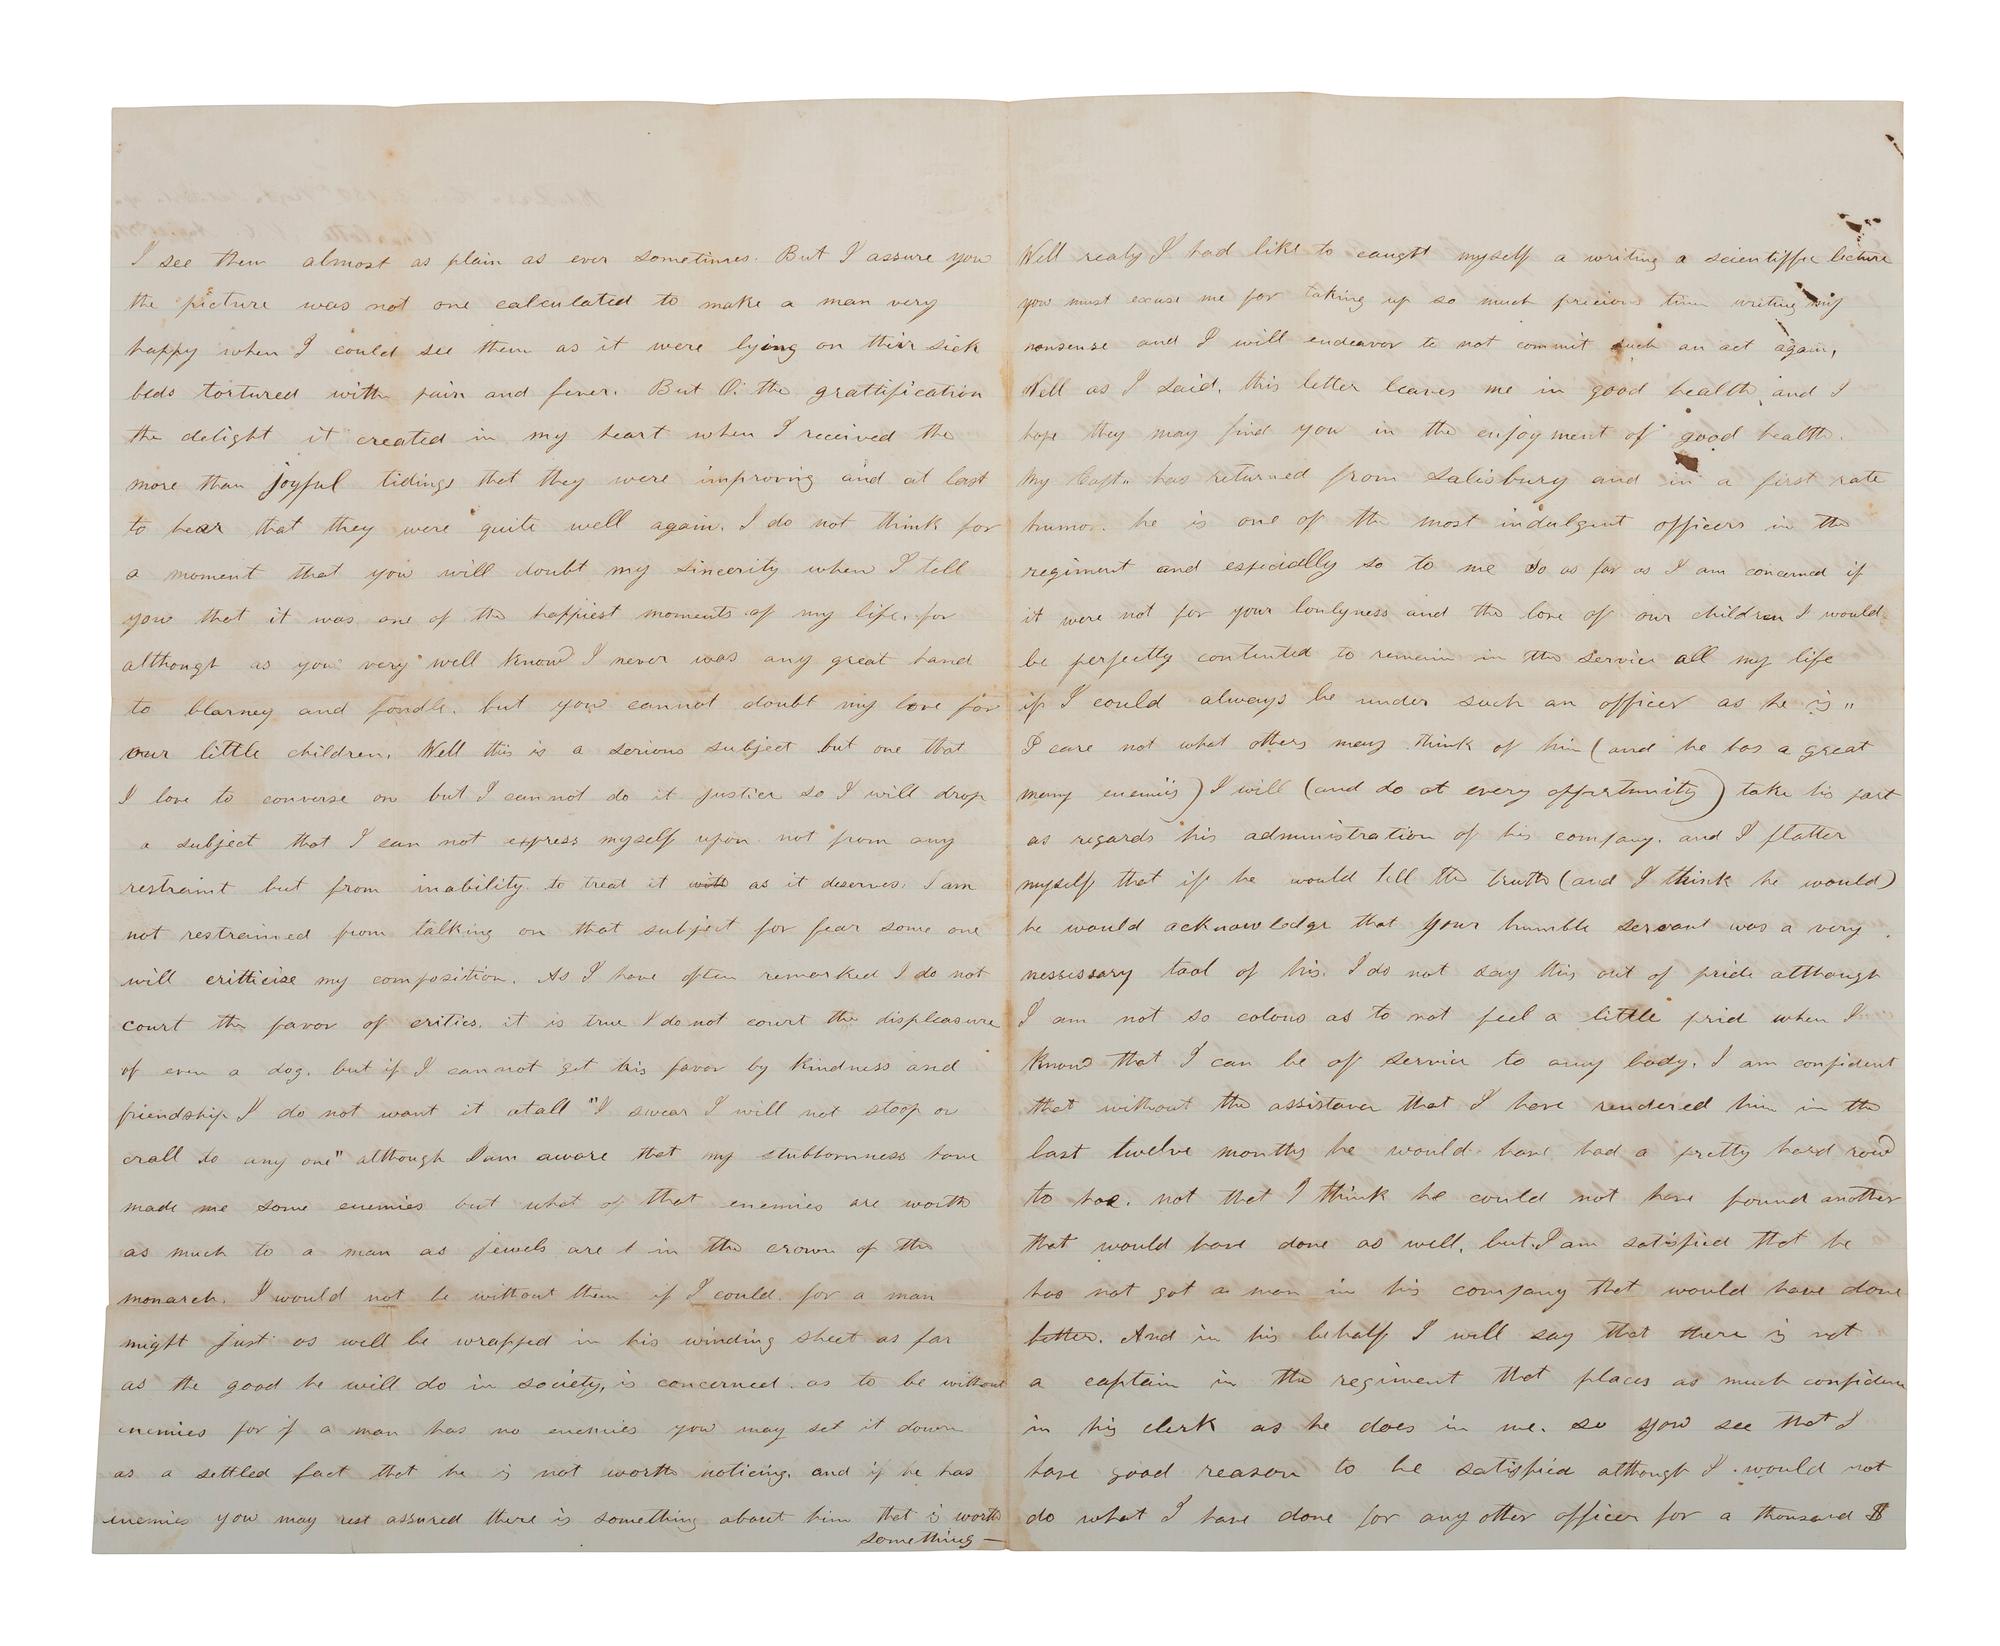 I see them almost as plain as ever sometimes. But I assure you
the picture was not one calculated to make a man very
happy when I could see them as it were lying on their sick
beds tortured with pain and fever. But O. the grattification
the delight it created in my heart when I received the
more than joyful tidings that they were improving and at last
to hear that they were quite well again. I do not think for
a moment that you will doubt my sincerity when I tell
you that it was one of the happiest moments of my life. for
althought as you very well know I never was any great hand
to blarney and fondle. but you cannot doubt my love for
our little children. Well this is a serious subject but one that
I love to converse on but I cannot do it justice so I will drop
a subject that I can not express myself upon not from any
restraint but from inability to treat it with as it deserves. I am
not restrained from talking on that subject for fear some one
will critticise my composition. As I have often remarked I do not
court the favor of critics. it is true I do not court the displeasure
of even a dog. but if I cannot get his favor by kindness and
friendship I do not want it atall "I swear I will not stoop or
crall to any one" although I am aware that my stubbornness have
made me some enemies but what of that enemies are worth
as much to a man as jewels are t in the crown of the
monarch. I would not be without them if I could. for a man
might just as well be wrapped in his winding sheet as far
as the good he will do in society, is concerned. as to be without
enemies for if a man has no enemies you may set it down
as a settled fact that he is not worth noticing. and if he has
enemies you may rest assured there is something about him that is worth
something —
Well realy I had like to caught myself a writing a scientiffic lecture
you must excuse me for taking up so much pricious time writing my
nonsense and I will endeavor to not commit such an act again,
Well as I said. this letter leaves me in good health and I
hope they may find you in the enjoyment of good health.
My Capt,, has returned from Salisbury and in a first rate
humor. he is one of the most indulgent officers in the
regiment and especially so to me so as far as I am concerned if
it were not for your lonlyness and the love of our children I would
be perfectly contented to remain in the service all my life
if I could always be under such an officer as he is,,
I care not what others may think of him (and he has a great
many enemiis) I will (and do at every opportunity) take his part
as regards his administration of his company. and I flatter
myself that if he would tell the truth (and I think he would)
he would acknowledge that your humble servant was a very
nessissary tool of his. I do not say this out of pride although
I am not so colous as to not feel a little prid when I
know that I can be of service to any body. I am confident
that without the assistance that I have rendered him in the
last twelve months he would have had a pretty hard row
to hoe. not that I think he could not have found another
that would have done as well. but I am satisfied that he
has not got a man in his company that would have done
better. And in his behalf I will say that there is not
a captain in the regiment that places as much confidence
in his clerk as he does in me. so you see that I
have good reason to be satisfied although I would not
do what I have done for any other officer for a thousand $